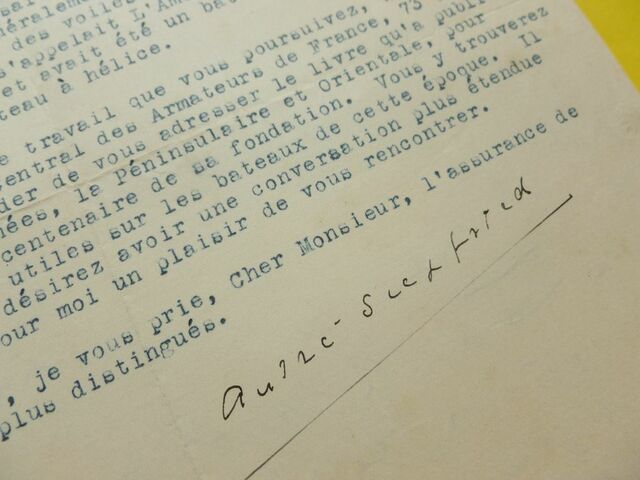 des voiles
s'appelait L'Am
et avait été un bat
teau à hélice.
e travail que vous poursuivez,
entral des Armateurs de France, 73
der de vous adresser le livre qu'a publi
nées, la Péninsulaire et Orientale, pour
centenaire de sa fondation. Vous y trouverez
utiles sur les bateaux de cette époque. Il
désirez avoir une conversation plus étendue
our moi un plaisir de vous rencontrer.
, je vous prie, Cher Monsieur, l'assurance de
plus distingués.
André Siegfried